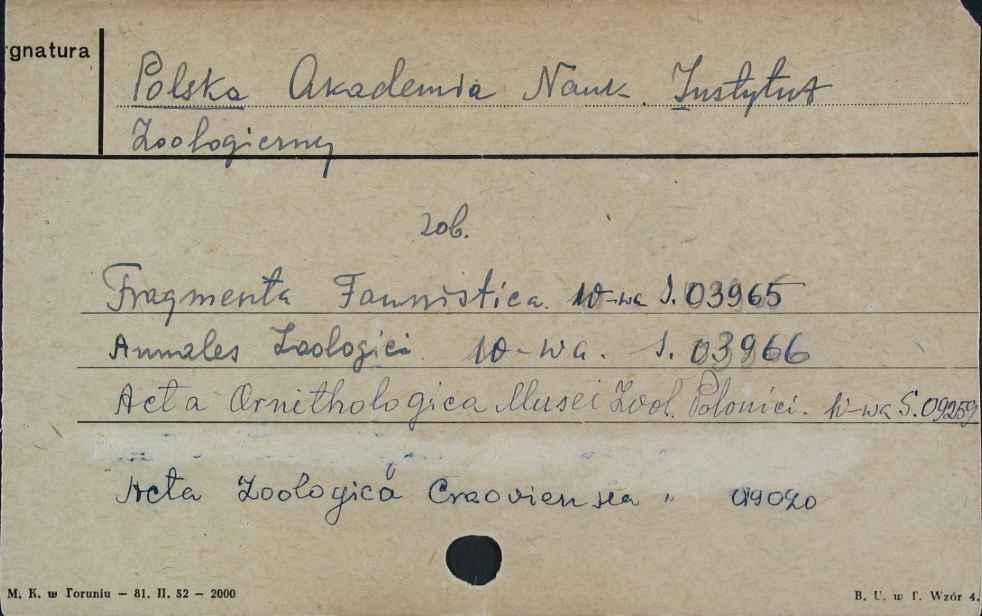 gnatura
Polska Akademia Nauk. Instytut
Zoologiczny
zob.
Fragmenta Faunistica. W-wa S. 03965
Annales Zoologici. W-wa. S. 03966
Acta Ornithologica Musei Zool. Polonici. W-wa S. 09259
Acta Zoologica Cracoviensea " 09020
M. K. w Toruniu — 81. II. 52 — 2000
B. U. w T. Wzór 4.